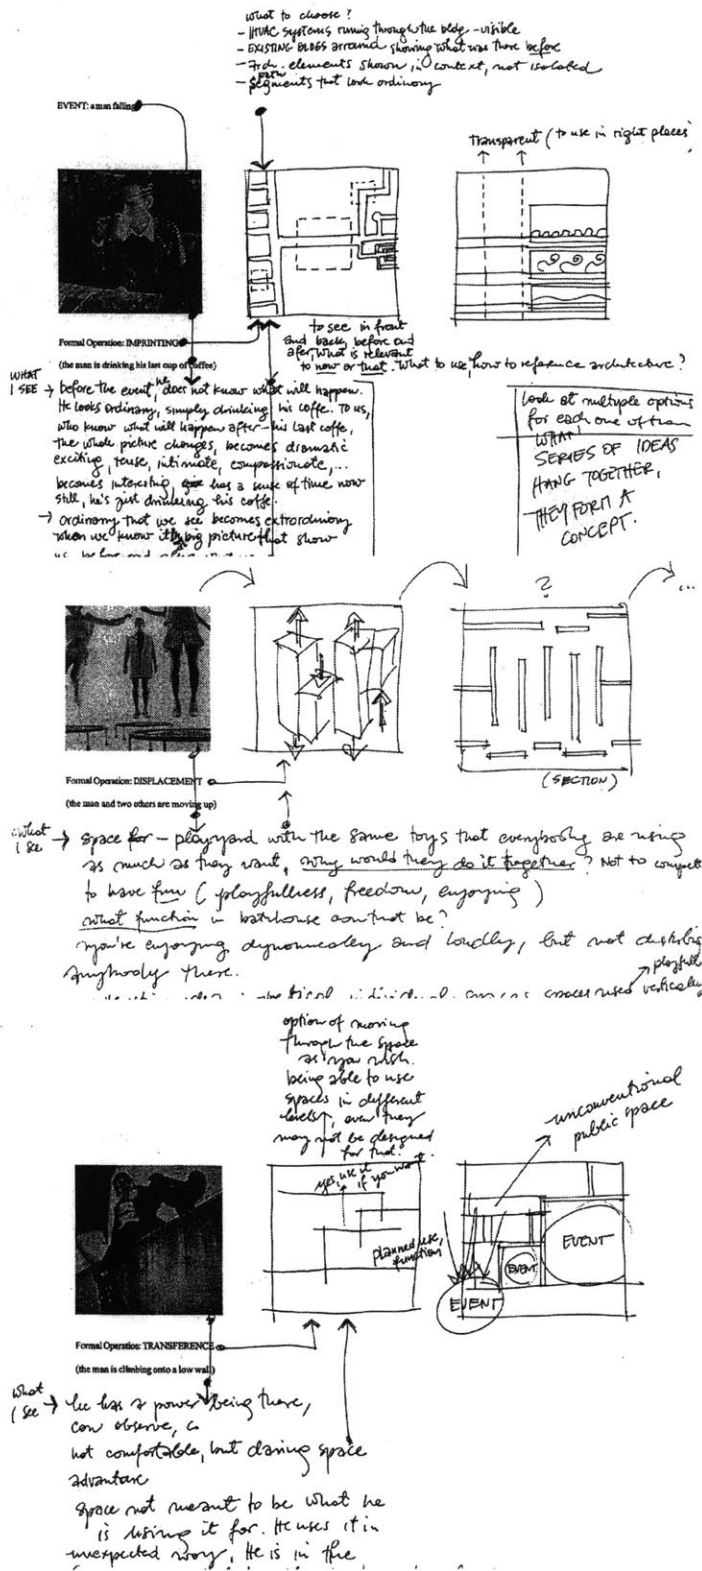 what to choose?
- HVAC systems runing through the bldg - visible
- EXISTING BLDGS arround showing what was there before
- Arch. elements shown in context, not isolated
- path
segments that look ordinary
EVENT: a man falling
Transparent (to use in right places)
Formal Operation: IMPRINTING
(the man is drinking his last cup of coffee)
to see in front
and back, before and
afer, What is relevant
to now or that. What to use, how to reference architective?
WHAT
I SEE → before the event, he does not know what will happen.
He looks ordinary, simply drinking his coffe. To us,
who know what will happen after - his last coffe,
the whole picture changes, becomes dramatic
exciting, tense, intimate, compassionate, ...
becomes interesting, has a sense of time now
still, he's just drinking his coffe.
→ ordinary that we see becomes extrordinary
when we know it by big picture that show
Look at multiple options
for each one of them
WHAT,
SERIES OF IDEAS
HANG TOGETHER,
THEY FORM A
CONCEPT.
?
...
Formal Operation: DISPLACEMENT
(the man and two others are moving up)
(SECTION)
what
I see → space for - playyard with the same toys that everybody are using
as much as they want, why would they do it together? Not to compete
to have fun (playfullness, freedom, enjoying)
what function in bathouse can that be?
you're enjoying dynamicaley and loudly, but not disturbing
anybody there.
playfull
spaces used vertically
option of moving
through the space
as you wish.
being able to use
spaces in different
levels, even they
may not be designed
for that.
yes, use it
if you want
planned use,
function
unconventional
public space
EVENT
EVENT
EVENT
Formal Operation: TRANSFERENCE
(the man is climbing onto a low wall)
what
I see → he has a power being there,
can observe,
not comfortable, but daring space
advantage
space not meant to be what he
is using it for. He uses it in
unexpected way, He is in the